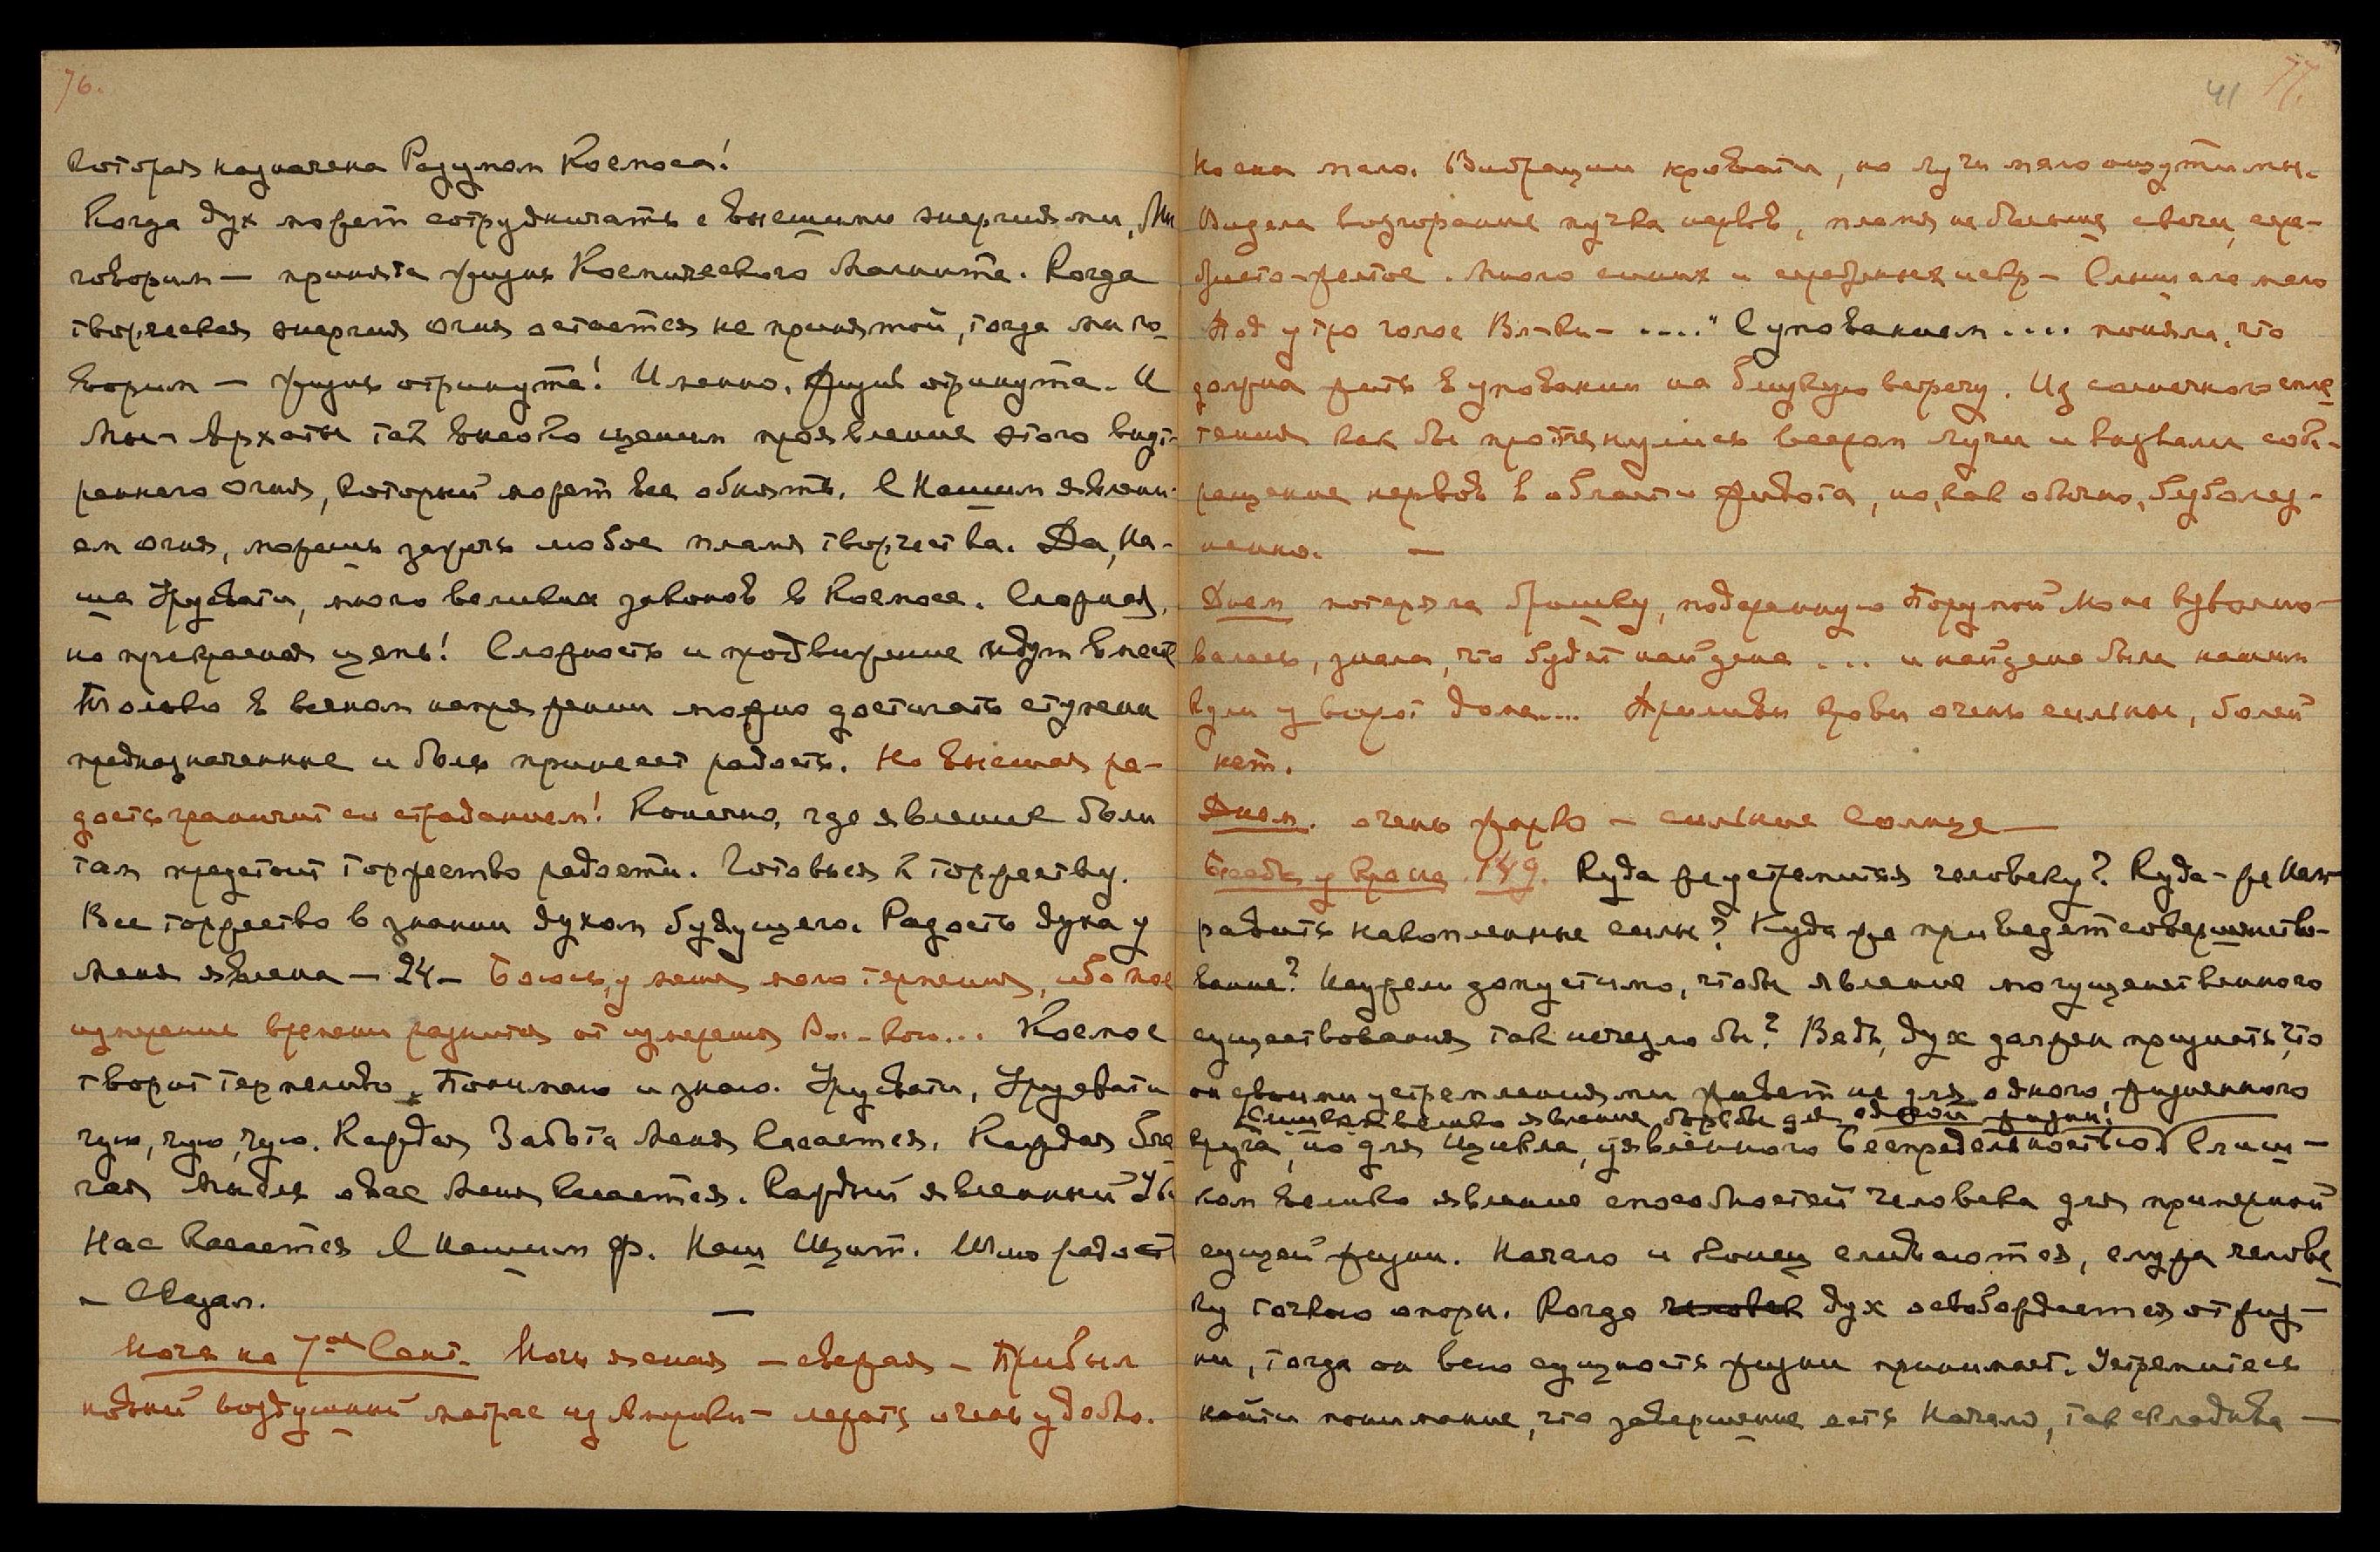 76.
которая назначена Разумом Космоса!
Когда дух может сотрудничать с высшими энергиями, Мы
говорим — принята жизнь Космического Магнита. Когда
творческая энергия огня остается не принятой, тогда мы го-
ворим — жизнь отринута! Именно, жизнь отринута. И
Мы - Архаты так высоко ценим проявление этого внут-
реннего огня, который может все обнять. С Нашим явлени-
ем огня, можешь зажечь любое пламя творчества. Да, На-
ша Урусвати, много великих законов в Космосе. Сложная,
но прекрасная цепь! Сложность и продвижение идут вместе
Только в великом напряжении можно достигать ступени
предназначенные и боль принесет радость. Но высшая ра-
дость граничит со страданием! Конечно, где явление боли
там предстоит торжество радости. Готовься к торжеству.
Все торжество в знании духом будущего. Радость духа у
Меня явлена — 24 — Боюсь, у меня мало терпения, ибо мое
измерение времени разнится от измерения Вл-ки... Космос
творит терпеливо. Понимаю и знаю. Урусвати, Урусвати
чую, чую, чую. Каждая Забота Меня касается. Каждая бла
гая Мысль о Вас Меня касается. Каждый явленный
Нас касается С Нашим Ф. Наш Щит. Шлю радость
— Сказал.
Ночь на 7ое Сент. Ночь ясная — свежая — Прибыл
новый воздушный матрас из Америки — лежать очень удобно.
41 77.
Но спала мало. Вибрации кровати, но лучи мало ощутимы.
Видела возгорание пучка нервов, пламя не больше свечи, сере-
бристо-желтое. Много синих и серебряных искр — Слышала мало
Под утро голос Вл-ки — ...." С упованием .... поняла, что
должна жить в уповании на близкую встречу. Из солнечного спле
тения как бы протянулись веером лучи и вызвали сок-
ращение нервов в области живота, но, как обычно, безболез-
ненно. —
Днем потеряла брошку, подаренную Порумой Мало взволно-
валась, знала, что будет найдена ... и найдена была нашим
Кули у ворот дома.... Приливы крови очень сильны, болей
нет.
Днем. очень жарко — сильное Солнце —
Беседы у Врача 149. Куда же устремиться человеку? Куда-же нап
равить накопленные силы? Куда же приведет совершенство-
вание? Неужели допустимо, чтобы явление могущественного
существования так исчезло бы? Ведь, дух должен признать, что
он своими устремлениями живет не для одного жизненного
Слишком велико явление борьбы для одной жизни!
круга, но для Цикла, уявленного Беспредельностью. Слиш-
ком велико явление способностей человека для примерной
сущей жизни. Начало и Конец сливаются, служа челове
ку точкою опоры. Когда человек дух освобождается от жиз-
ни, тогда он всю сущность жизни принимает. Устремитесь
найти понимание, что завершение есть Начало, так складыва —